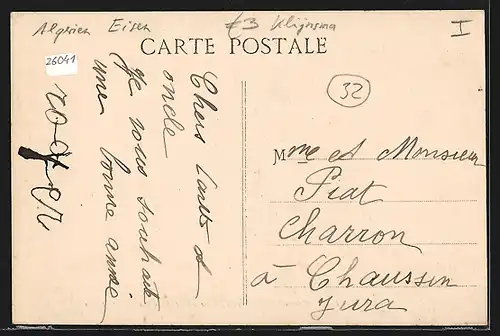 Algerien Eisen
I
CARTE POSTALE
26041
32
Chers tante et
oncle
Je vous souhaite
une bonne année
Mme et Monsieur
Piat
Charron
à Chaussin
Jura